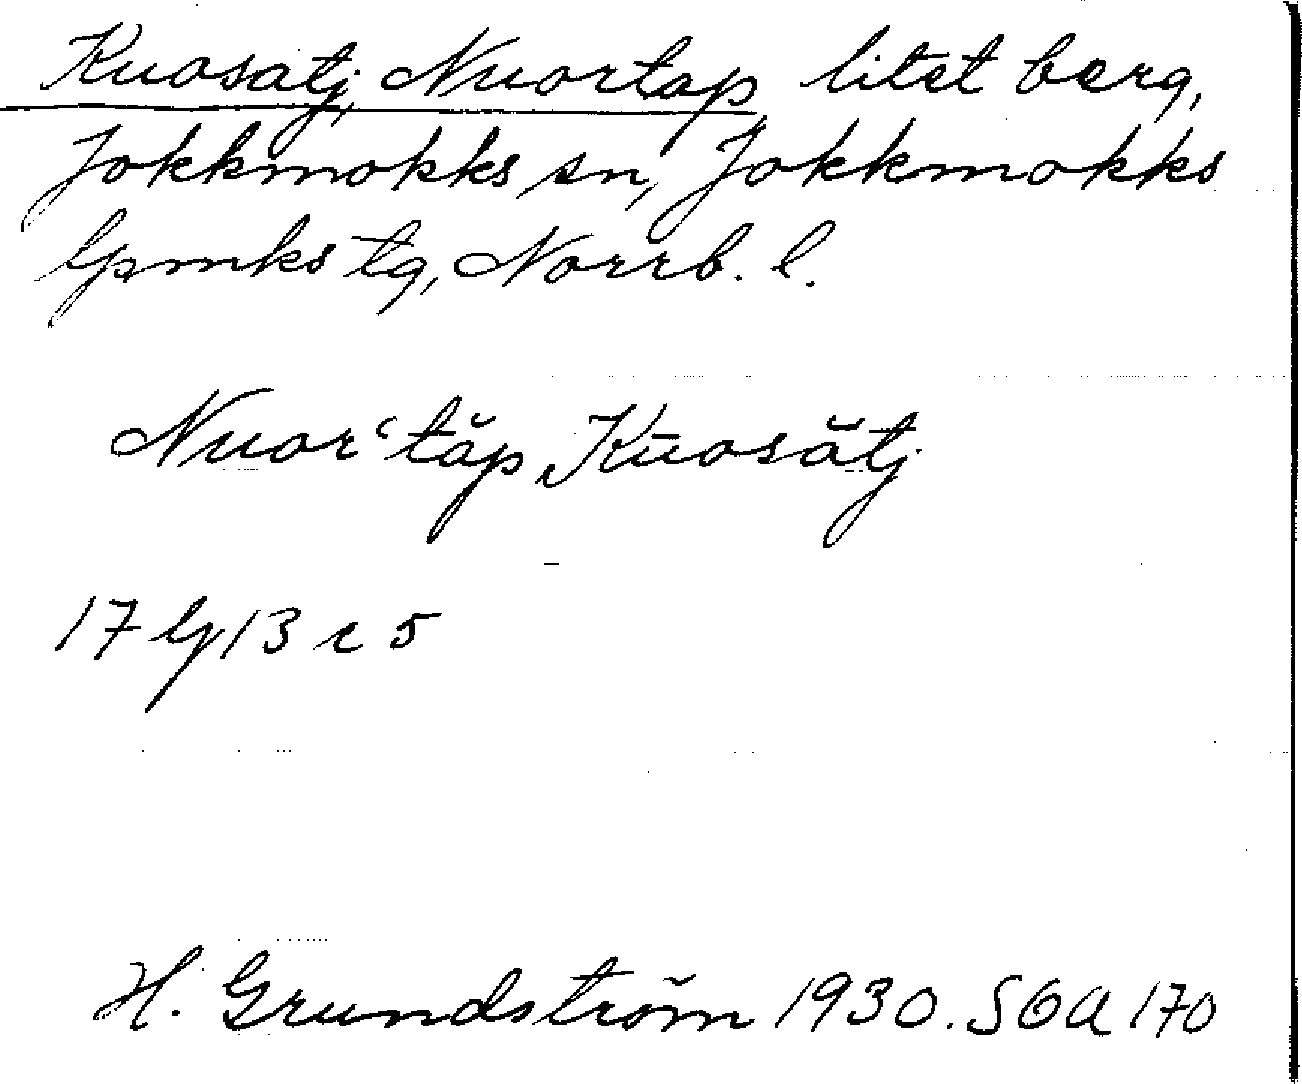 Kuosatj, Nuortap, litet berg,
Jokkmokks sn, Jokkmokks
lpmks tg, Norrb. l.
Nuorʿtăp, Kūosătj
17 lg 13 c 5
H. Grundström 1930. SOA 170